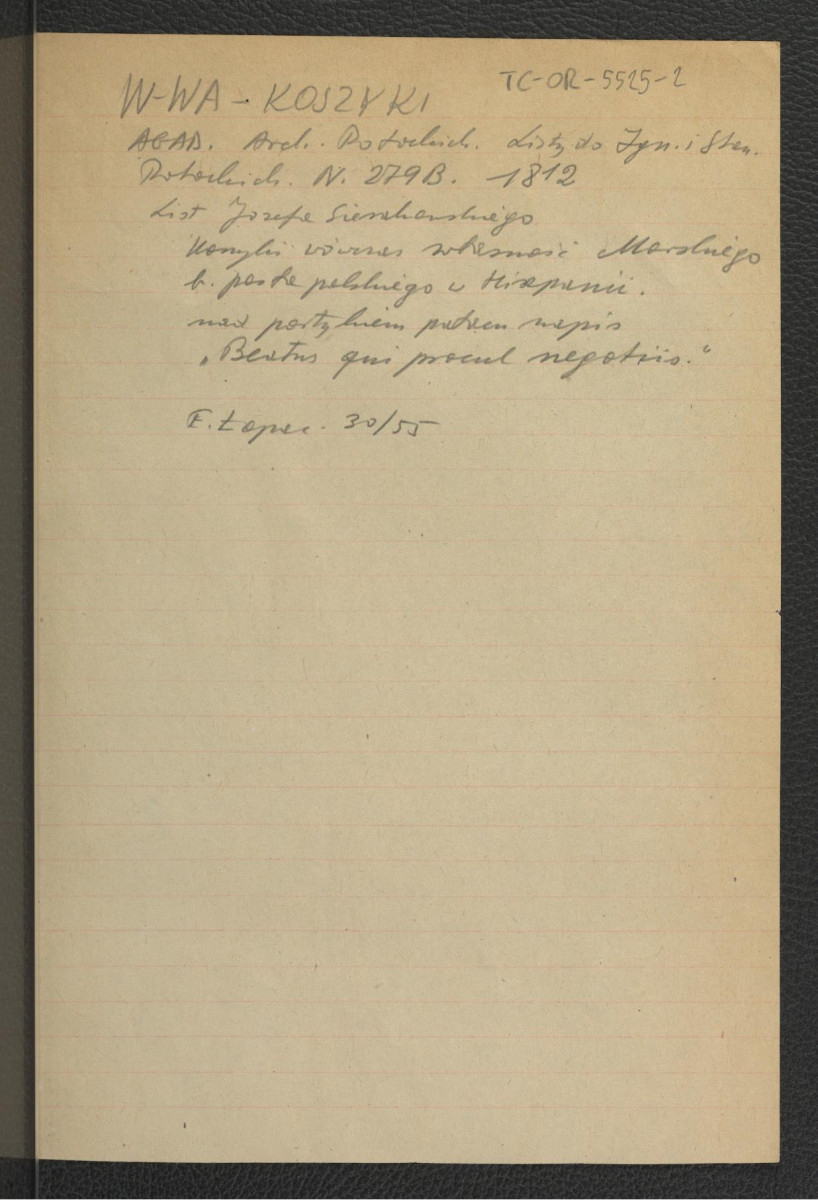 TC-OR-5525-2
W-WA - KOSZYKI
AGAD. Arch. Potockich. Listy do Ign. i Stan.
Potockich. N. 279B. 1812
List Józefa Sierakowskiego
Koszyki wówczas własność Morskiego
b. posła polskiego w Hiszpanii.
nad portykiem pałacu napis
„Beatus qui procul negotiis."
E. Łopac. 30/55